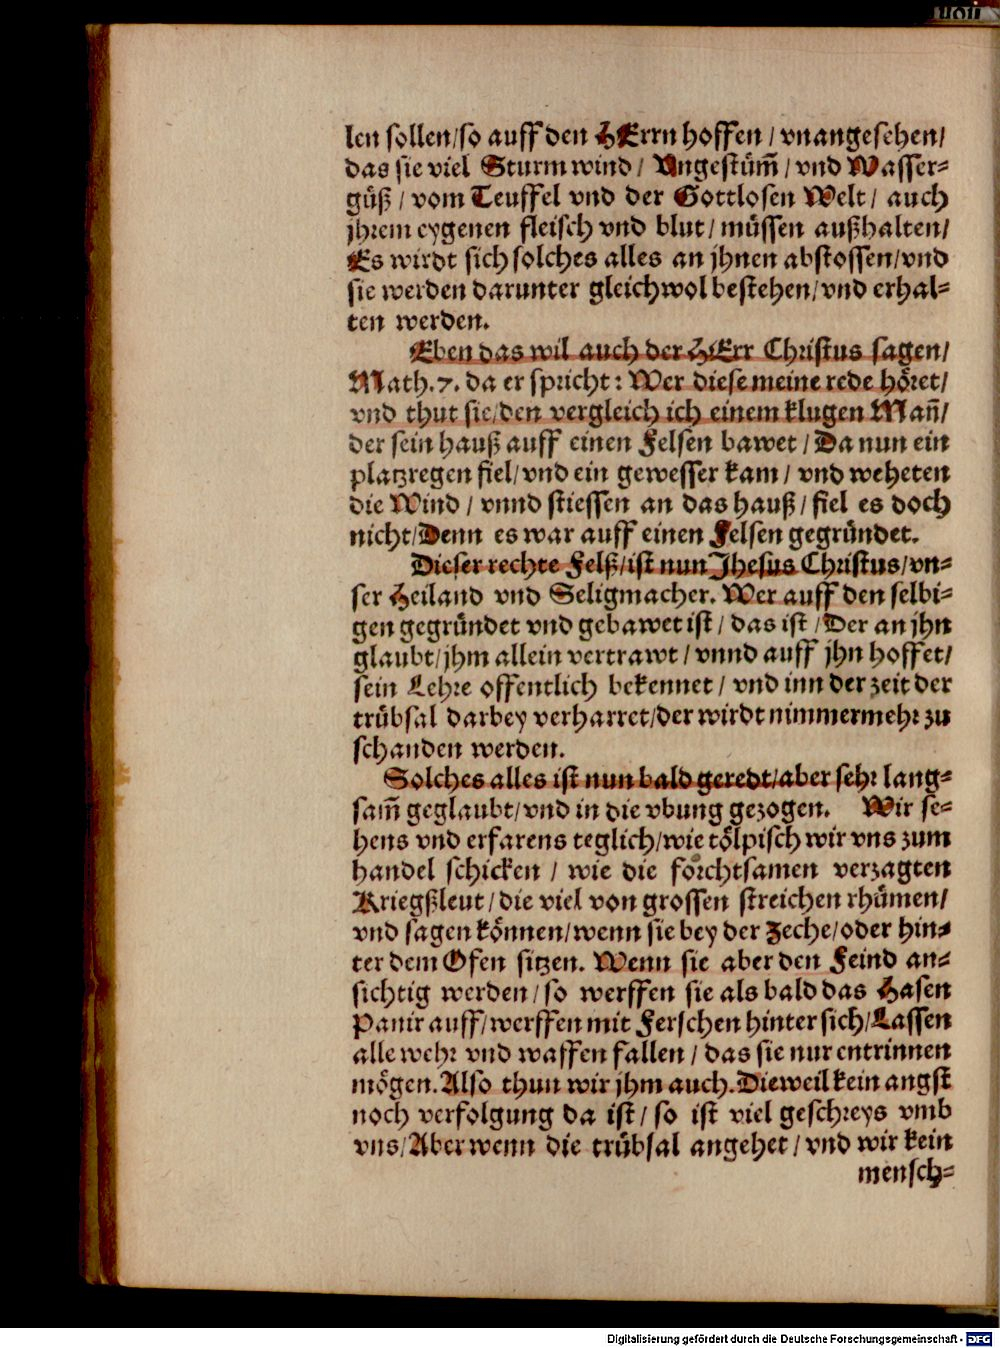 len sollen/so auff den HErrn hoffen / vnangesehen/
das sie viel Sturm wind / Vngestüm̃ / vnd Wasser-
güß / vom Teuffel vnd der Gottlosen Welt / auch
jhrem eygenen fleisch vnd blut / müssen außhalten/
Es wirdt sich solches alles an jhnen abstossen/vnd
sie werden darunter gleichwol bestehen/vnd erhal-
ten werden.
Eben das wil auch der HErr Christus sagen/
Math.7. da er spricht: Wer diese meine rede höret/
vnd thut sie/den vergleich ich einem klugen Mañ/
der sein hauß auff einen Felsen bawet / Da nun ein
platzregen fiel/vnd ein gewesser kam / vnd weheten
die Wind / vnnd stiessen an das hauß / fiel es doch
nicht/Denn es war auff einen Felsen gegründet.
Dieser rechte Felß/ist nun Jhesus Christus/vn-
ser Heiland vnd Seligmacher. Wer auff den selbi-
gen gegründet vnd gebawet ist / das ist / Der an jhn
glaubt/jhm allein vertrawt / vnnd auff jhn hoffet/
sein Lehre offentlich bekennet / vnd inn der zeit der
trübsal darbey verharret/der wirdt nimmermehr zu
schanden werden.
Solches alles ist nun bald geredt/aber sehr lang-
sam̃ geglaubt/vnd in die vbung gezogen. Wir se-
hens vnd erfarens teglich/wie tölpisch wir vns zum
handel schicken / wie die forchtsamen verzagten
Kriegßleut / die viel von grossen streichen rhümen/
vnd sagen können/wenn sie bey der Zeche/oder hin-
ter dem Ofen sitzen. Wenn sie aber den Feind an-
sichtig werden / so werffen sie als bald das Hasen
Panir auff/werffen mit Ferschen hinter sich/Lassen
alle wehr vnd waffen fallen / das sie nur entrinnen
mögen. Also thun wir jhm auch. Dieweil kein angst
noch verfolgung da ist / so ist viel geschreys vmb
vns/Aber wenn die trübsal angehet / vnd wir kein
mensch-
Digitalisierung gefördert durch die Deutsche Forschungsgemeinschaft - DFG